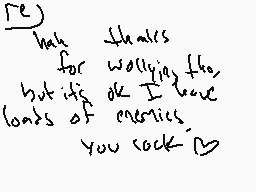 re)
hah thanks
for worrying tho,
but it's ok I have
loads of enemies.
you rock ♡